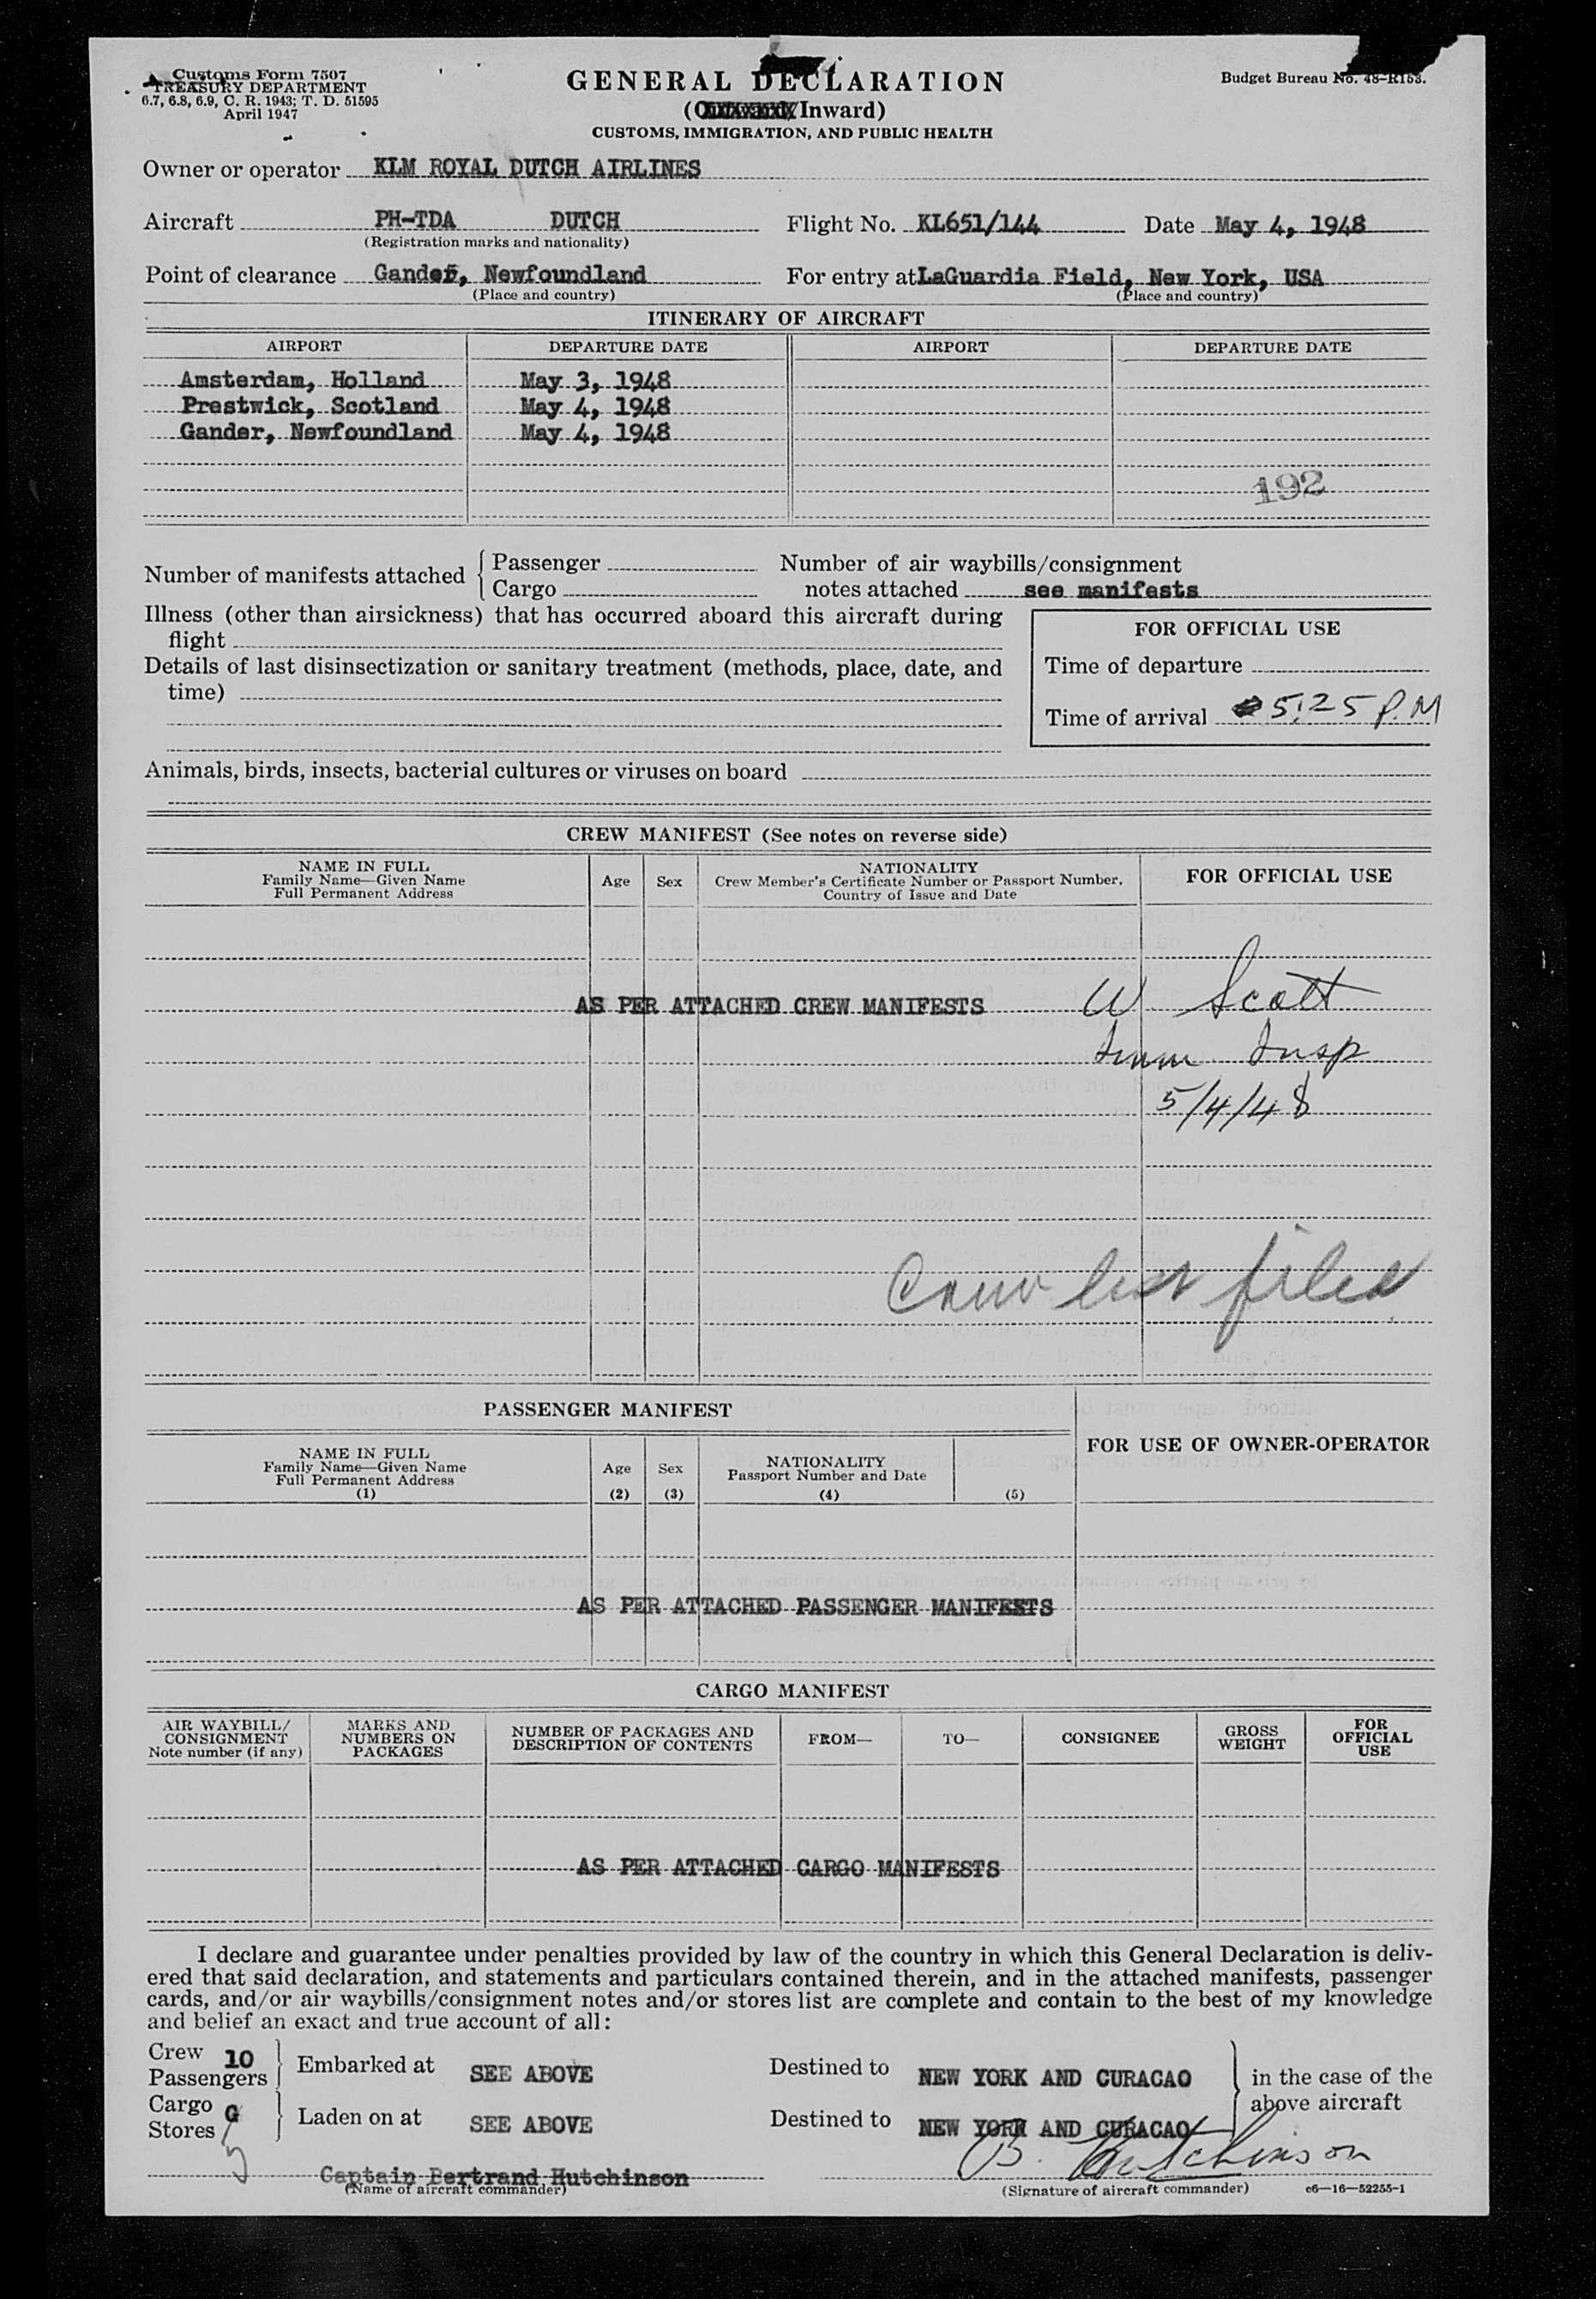 Customs Form 7507
TREASURY DEPARTMENT
6.7, 6.8, 6.9, C. R. 1943; T. D. 51595
April 1947
GENERAL DECLARATION
(Outward/Inward)
CUSTOMS, IMMIGRATION, AND PUBLIC HEALTH
Budget Bureau No. 48-R153.
Owner or operator KLM ROYAL DUTCH AIRLINES
Aircraft PH-TDA DUTCH Flight No. KL651/144 Date May 4, 1948
(Registration marks and nationality)
Point of clearance Gander, Newfoundland For entry at LaGuardia Field, New York, USA
(Place and country) (Place and country)
ITINERARY OF AIRCRAFT
AIRPORT DEPARTURE DATE AIRPORT DEPARTURE DATE
Amsterdam, Holland May 3, 1948
Prestwick, Scotland May 4, 1948
Gander, Newfoundland May 4, 1948
192
Number of manifests attached { Passenger
Cargo
Number of air waybills/consignment
notes attached see manifests
Illness (other than airsickness) that has occurred aboard this aircraft during
flight
Details of last disinsectization or sanitary treatment (methods, place, date, and
time)
FOR OFFICIAL USE
Time of departure
Time of arrival 5:25 P.M
Animals, birds, insects, bacterial cultures or viruses on board
CREW MANIFEST (See notes on reverse side)
NAME IN FULL
Family Name—Given Name
Full Permanent Address
Age
Sex
NATIONALITY
Crew Member's Certificate Number or Passport Number,
Country of Issue and Date
FOR OFFICIAL USE
AS PER ATTACHED CREW MANIFESTS
W Scott
Imm Insp
5/4/48
Crew list filed
PASSENGER MANIFEST
NAME IN FULL
Family Name—Given Name
Full Permanent Address
(1)
Age
(2)
Sex
(3)
NATIONALITY
Passport Number and Date
(4)
(5)
FOR USE OF OWNER-OPERATOR
AS PER ATTACHED PASSENGER MANIFESTS
CARGO MANIFEST
AIR WAYBILL/
CONSIGNMENT
Note number (if any)
MARKS AND
NUMBERS ON
PACKAGES
NUMBER OF PACKAGES AND
DESCRIPTION OF CONTENTS
FROM—
TO—
CONSIGNEE
GROSS
WEIGHT
FOR
OFFICIAL
USE
AS PER ATTACHED CARGO MANIFESTS
I declare and guarantee under penalties provided by law of the country in which this General Declaration is deliv-
ered that said declaration, and statements and particulars contained therein, and in the attached manifests, passenger
cards, and/or air waybills/consignment notes and/or stores list are complete and contain to the best of my knowledge
and belief an exact and true account of all:
Crew 10
Passengers
Embarked at SEE ABOVE Destined to NEW YORK AND CURACAO
in the case of the
above aircraft
Cargo
Stores
Laden on at SEE ABOVE Destined to NEW YORK AND CURACAO
B. Hutchinson
Captain Bertrand Hutchinson
(Name of aircraft commander) (Signature of aircraft commander) c6—16—52255-1